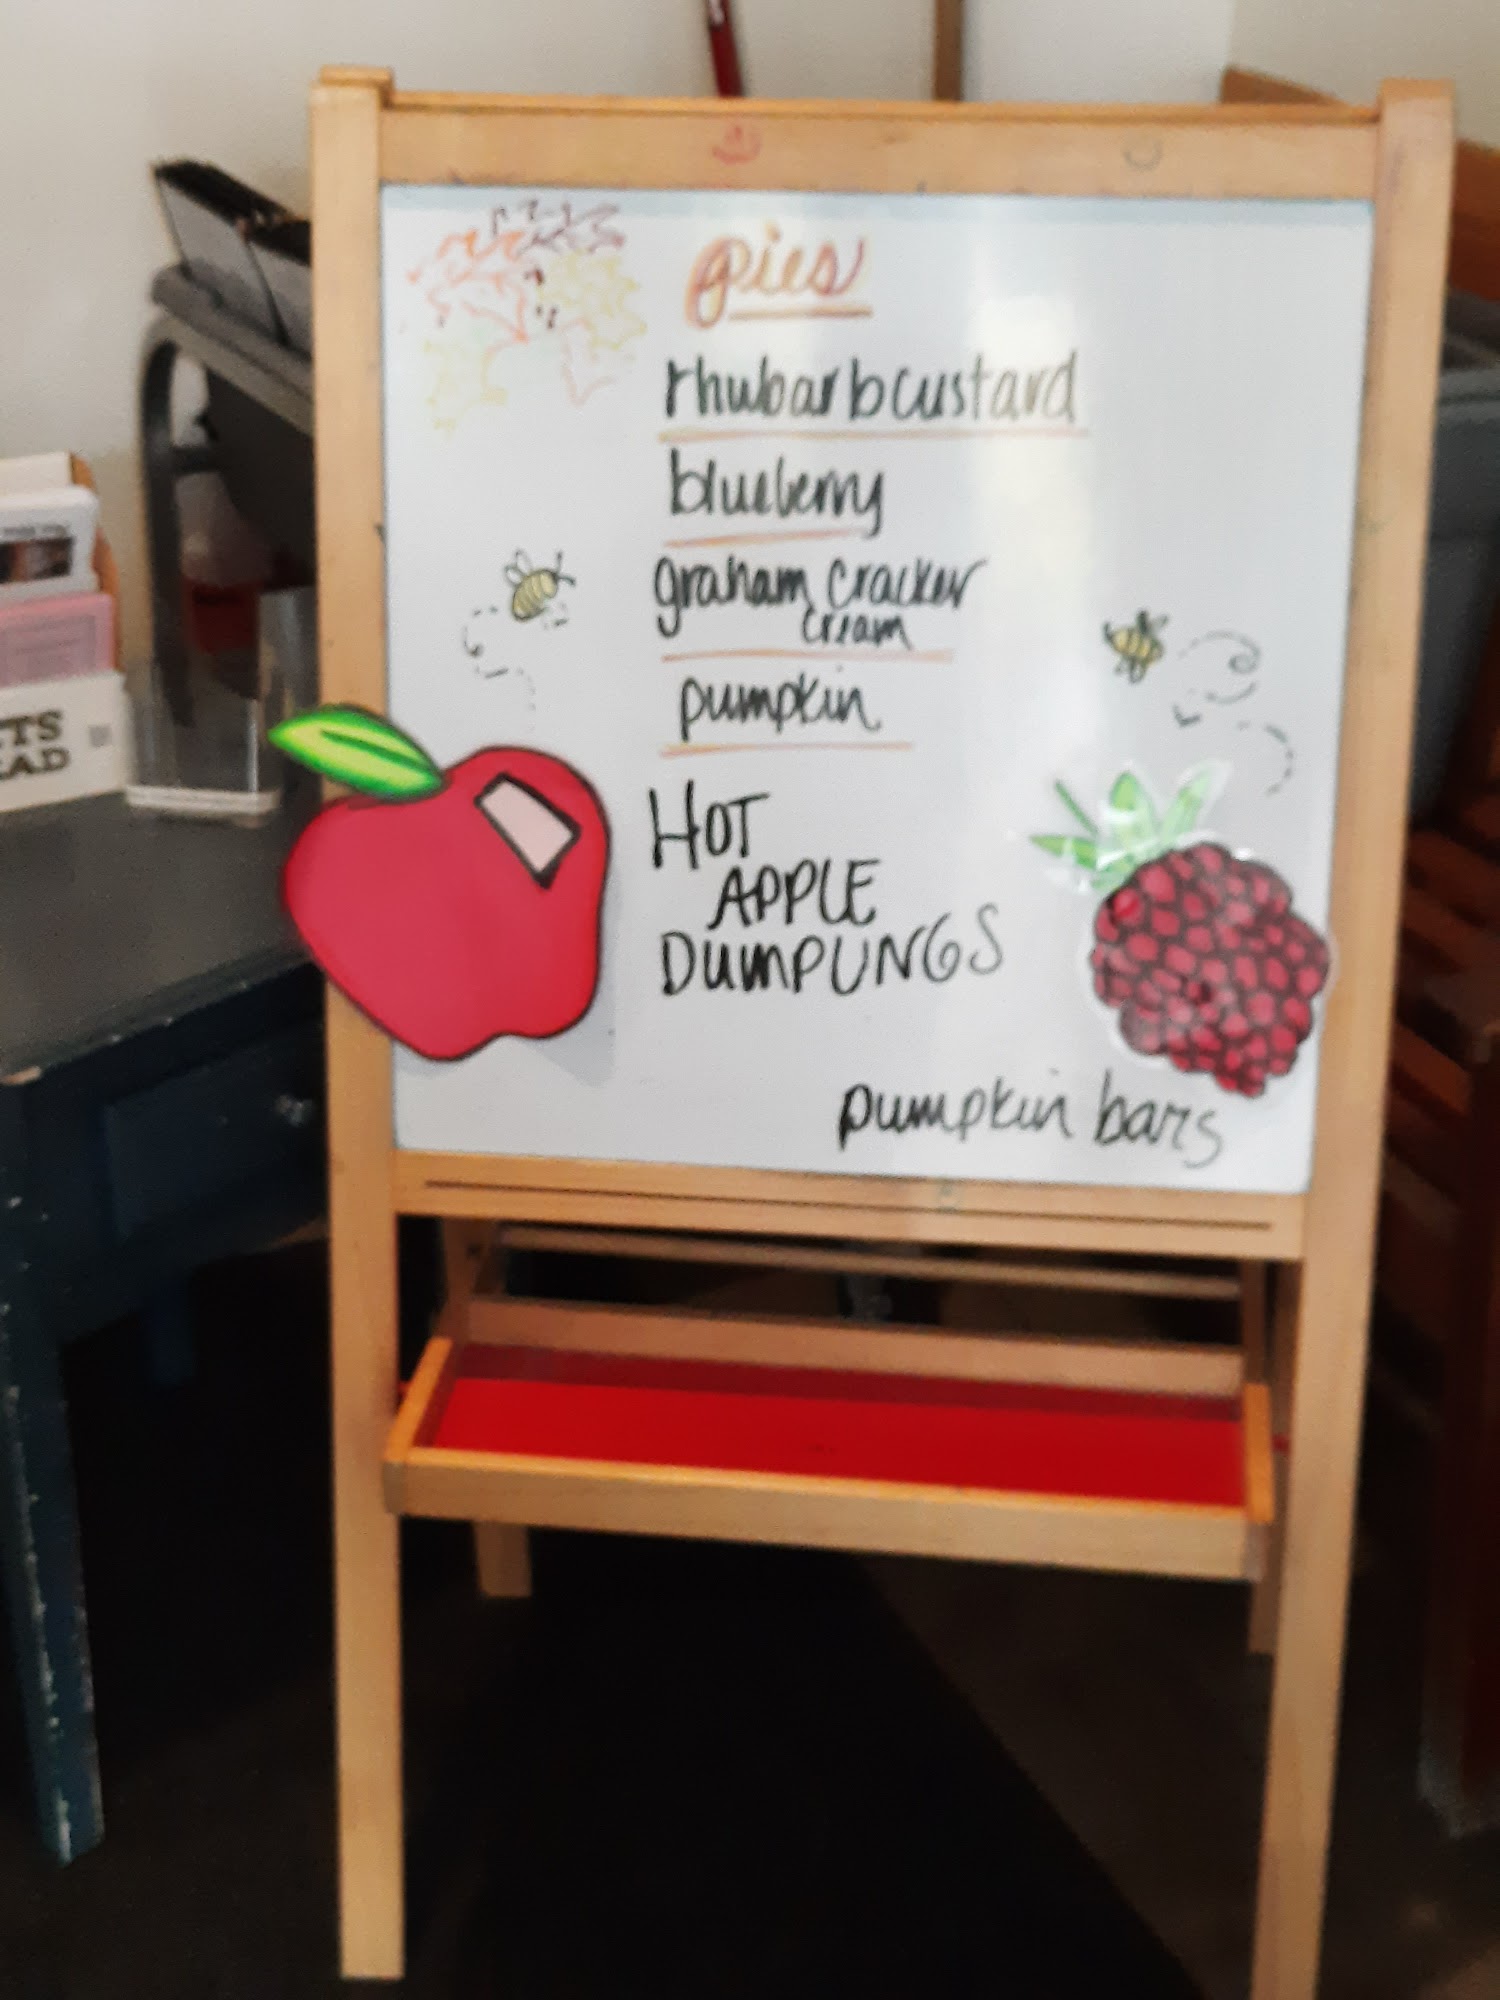 pies
rhubarb custard
blueberry
graham cracker
cream
pumpkin
HOT
APPLE
DUMPLINGS
pumpkin bars
TS
EAD